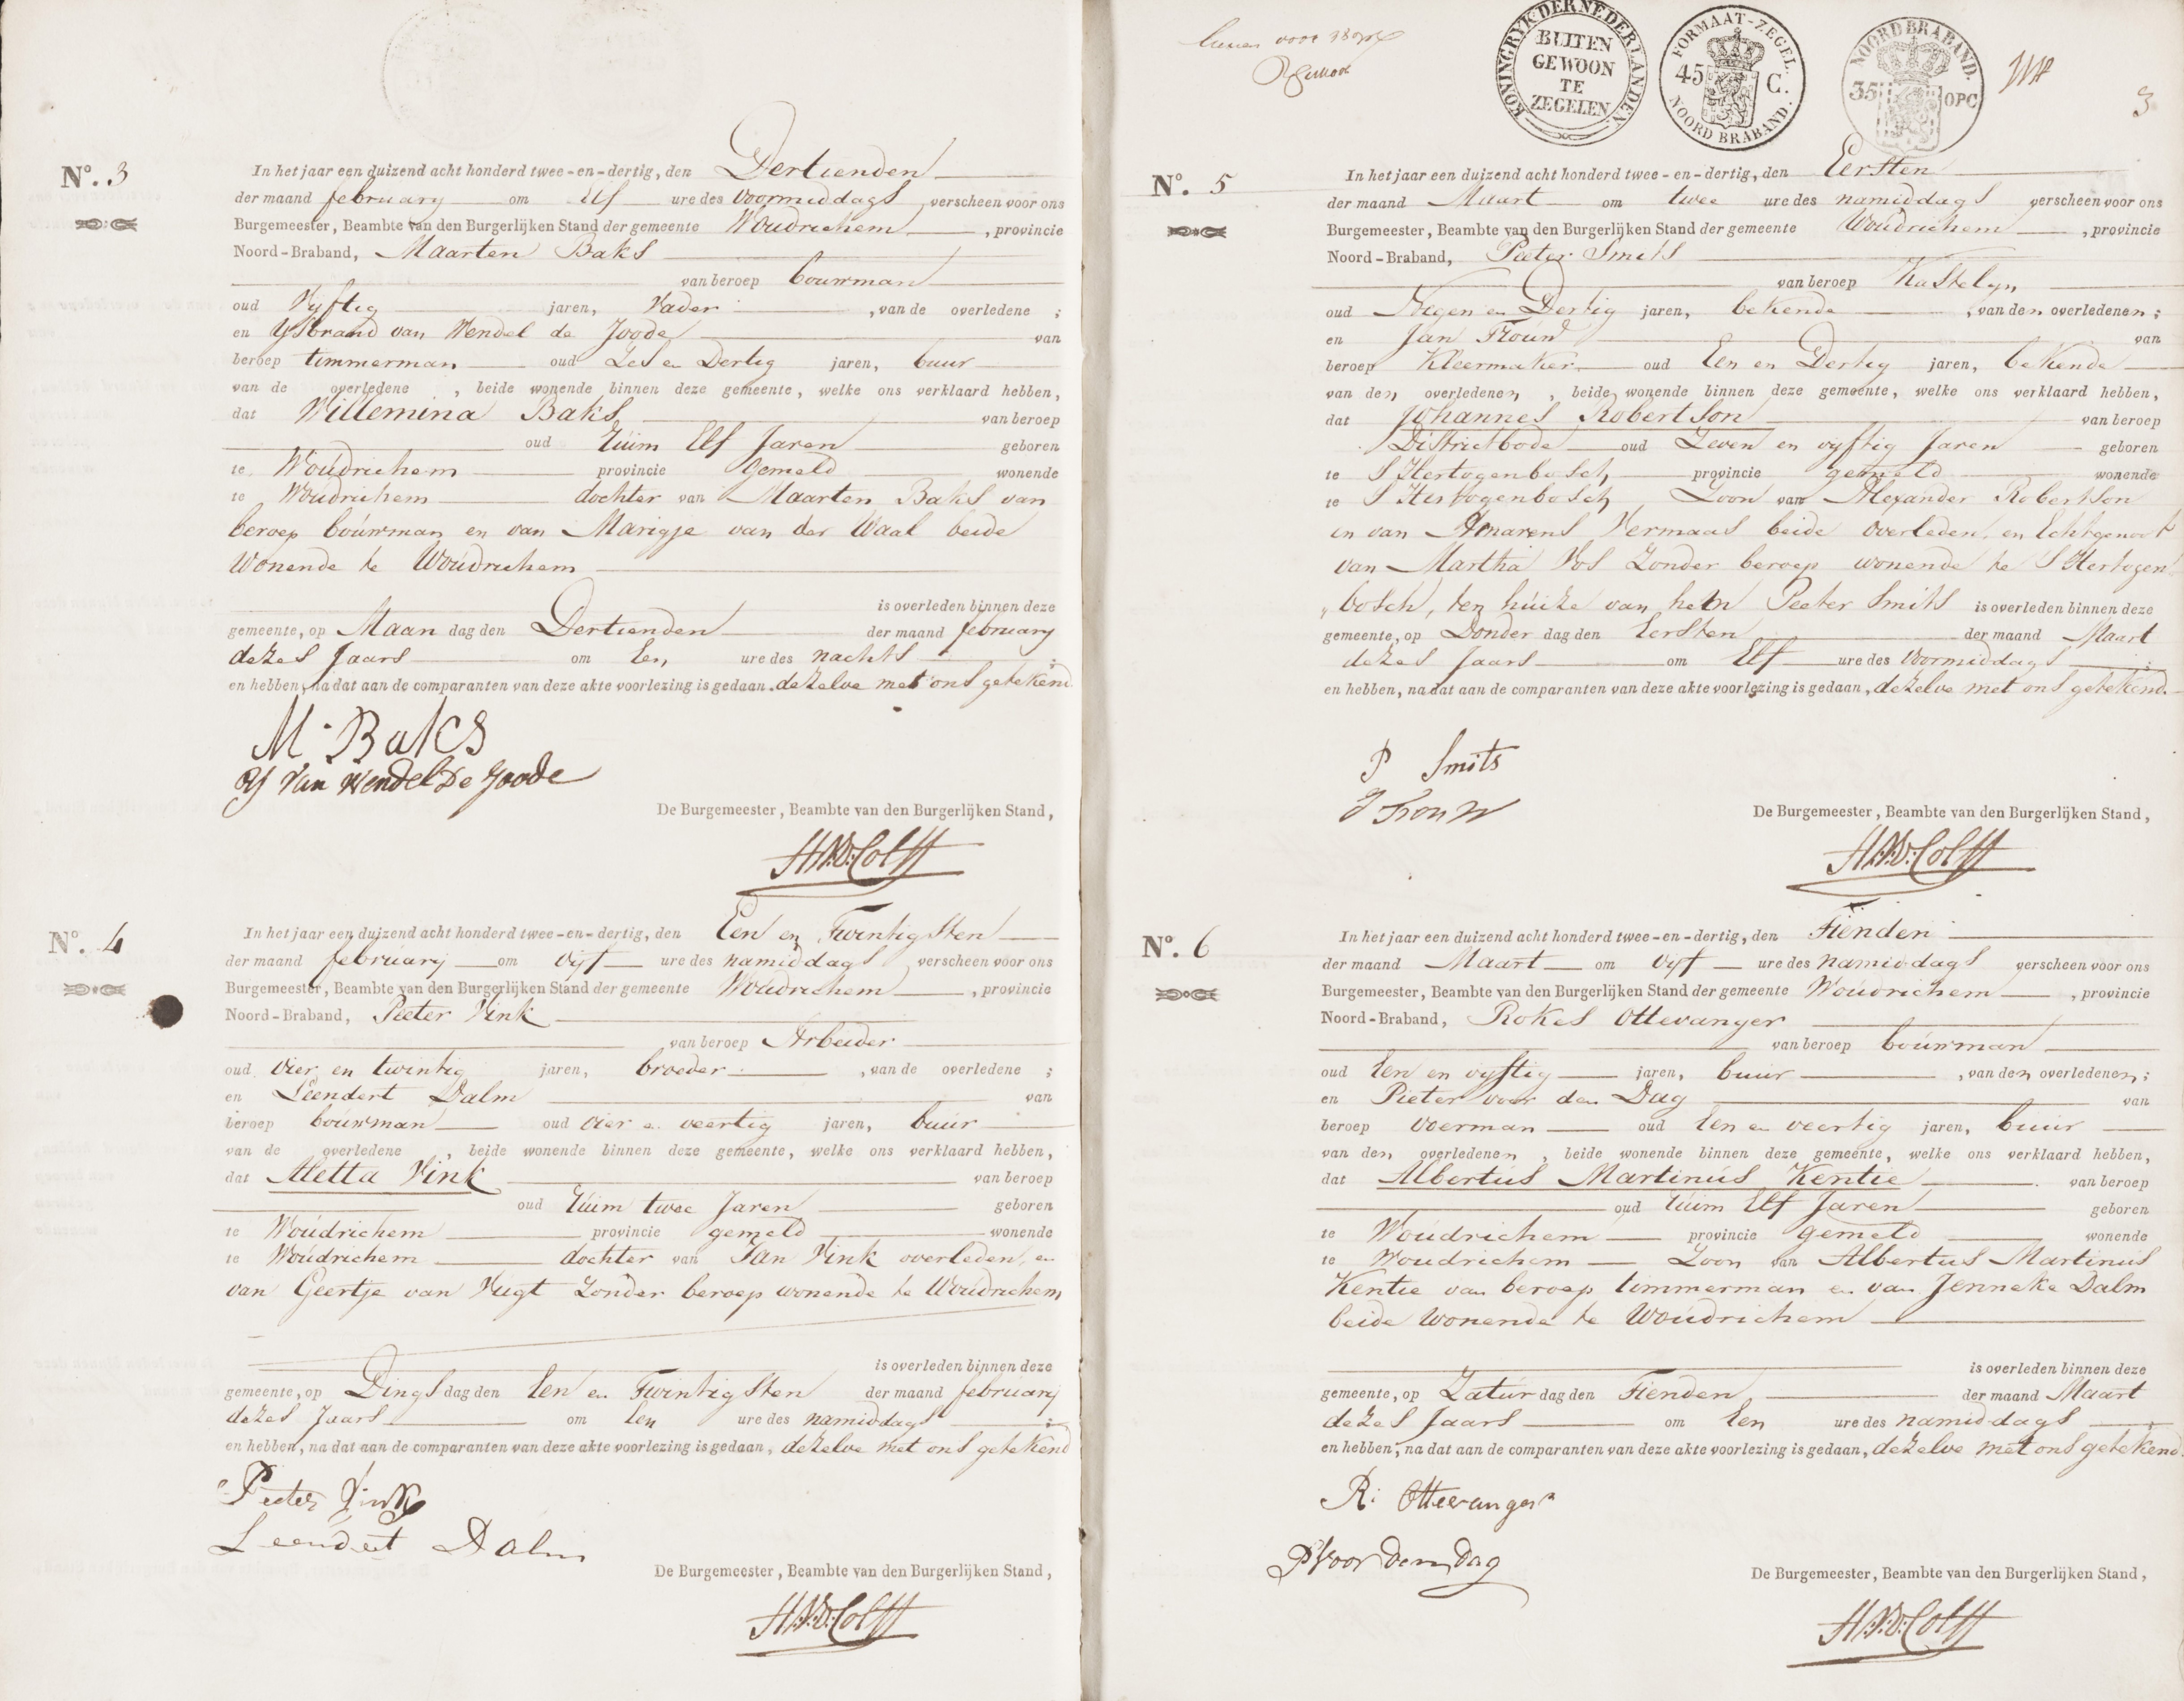 Nº. 3
In het jaar een duizend acht honderd twee-en-dertig, den Dertienden
der maand february om Elf ure des voormiddags verscheen voor ons
Burgemeester, Beambte van den Burgerlijken Stand der gemeente Woudrichem, provincie
Noord-Braband, Maarten Baks
van beroep bouwman
oud Vyftig jaren, Vader, van de overledene;
en Ysbrand van Wendel de Joode van
beroep timmerman oud Zes en Dertig jaren, buur
van de overledene, beide wonende binnen deze gemeente, welke ons verklaard hebben,
dat Willemina Baks van beroep
oud ruim Elf Jaren geboren
te Woudrichem provincie gemeld wonende
te Woudrichem dochter van Maarten Baks van
beroep bouwman en van Marigje van der Waal beide
wonende te Woudrichem
is overleden binnen deze
gemeente, op Maan dag den Dertienden der maand february
dezes Jaars om Een ure des nachts;
en hebben, na dat aan de comparanten van deze akte voorlezing is gedaan, dezelve met ons getekend.
M. Baks
Y Van Wendel De Joode
De Burgemeester, Beambte van den Burgerlijken Stand,
Nº. 4
In het jaar een duizend acht honderd twee-en-dertig, den Een en Twintigsten
der maand february om Vyf ure des namiddags verscheen voor ons
Burgemeester, Beambte van den Burgerlijken Stand der gemeente Woudrichem, provincie
Noord-Braband, Peeter Vink
van beroep Arbeider
oud Vier en twintig jaren, broeder, van de overledene;
en Leendert Dalm van
beroep bouwman oud vier en veertig jaren, buur
van de overledene, beide wonende binnen deze gemeente, welke ons verklaard hebben,
dat Aletta Vink van beroep
oud ruim twee Jaren geboren
te Woudrichem provincie gemeld wonende
te Woudrichem dochter van Jan Vink overleden, en
van Geertje van Vugt zonder beroep wonende te Woudrichem
is overleden binnen deze
gemeente, op Dings dag den Een en Twintigsten der maand february
dezes Jaars om Een ure des namiddags;
en hebben, na dat aan de comparanten van deze akte voorlezing is gedaan, dezelve met ons getekend
Peeter Vink
Leendert Dalm
De Burgemeester, Beambte van den Burgerlijken Stand,
KONINGRYK DER NEDERLANDEN
BUITEN
GEWOON
TE
ZEGELEN
FORMAAT-ZEGEL.
45 C.
NOORD BRABAND.
NOORD BRABAND.
35 OPC
3
Nº. 5
In het jaar een duizend acht honderd twee-en-dertig, den Eersten
der maand Maart om twee ure des namiddags verscheen voor ons
Burgemeester, Beambte van den Burgerlijken Stand der gemeente Woudrichem, provincie
Noord-Braband, Peeter Smits
van beroep Kastelyn
oud Negen en Dertig jaren, bekende, van den overledenen;
en Jan Trouw van
beroep Kleermaker oud Een en Dertig jaren, bekende
van den overledenen, beide wonende binnen deze gemeente, welke ons verklaard hebben,
dat Johannes Robertson van beroep
Districtbode oud Zeven en vyftig Jaren geboren
te S'Hertogenbosch provincie gemeld wonende
te S'Hertogenbosch Zoon van Alexander Robertson
en van Vermaas beide overleden, en Echtgenoot
van Martha Vos zonder beroep wonende te S'Hertogen
„bosch, ten huize van hem Peeter Smits is overleden binnen deze
gemeente, op Donder dag den Eersten der maand Maart
dezes Jaars om Elf ure des voormiddags;
en hebben, na dat aan de comparanten van deze akte voorlezing is gedaan, dezelve met ons getekend.
P Smits
J Trouw
De Burgemeester, Beambte van den Burgerlijken Stand,
Nº. 6
In het jaar een duizend acht honderd twee-en-dertig, den Tienden
der maand Maart om Vyf ure des namiddags verscheen voor ons
Burgemeester, Beambte van den Burgerlijken Stand der gemeente Woudrichem, provincie
Noord-Braband, Rokes Ottevanger
van beroep bouwman
oud Een en vyftig jaren, buur, van den overledenen;
en Pieter voor den Dag van
beroep Voerman oud Een en veertig jaren, buur
van den overledenen, beide wonende binnen deze gemeente, welke ons verklaard hebben,
dat Albertus Martinus Kentie van beroep
oud ruim Elf Jaren geboren
te Woudrichem provincie gemeld wonende
te Woudrichem Zoon van Albertus Martinus
Kentie van beroep timmerman en van Jenneke Dalm
beide wonende te Woudrichem
is overleden binnen deze
gemeente, op Zatur dag den Tienden der maand Maart
dezes Jaars om Een ure des namiddags
en hebben, na dat aan de comparanten van deze akte voorlezing is gedaan, dezelve met ons getekend.
R: Ottevanger
P Voor den Dag
De Burgemeester, Beambte van den Burgerlijken Stand,